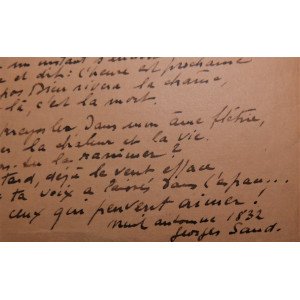 un instant s'
et dit: L'heure est prochaine
Dieu rivera la chaîne,
là, c'est la mort.
dans mon âme flétrie,
la chaleur et la vie.
tu la ranimer ?
tard, déjà le vent efface
ta voix a laissés dans l'espace...
ceux qui peuvent aimer !
Nuit automne 1832
Georges Sand.